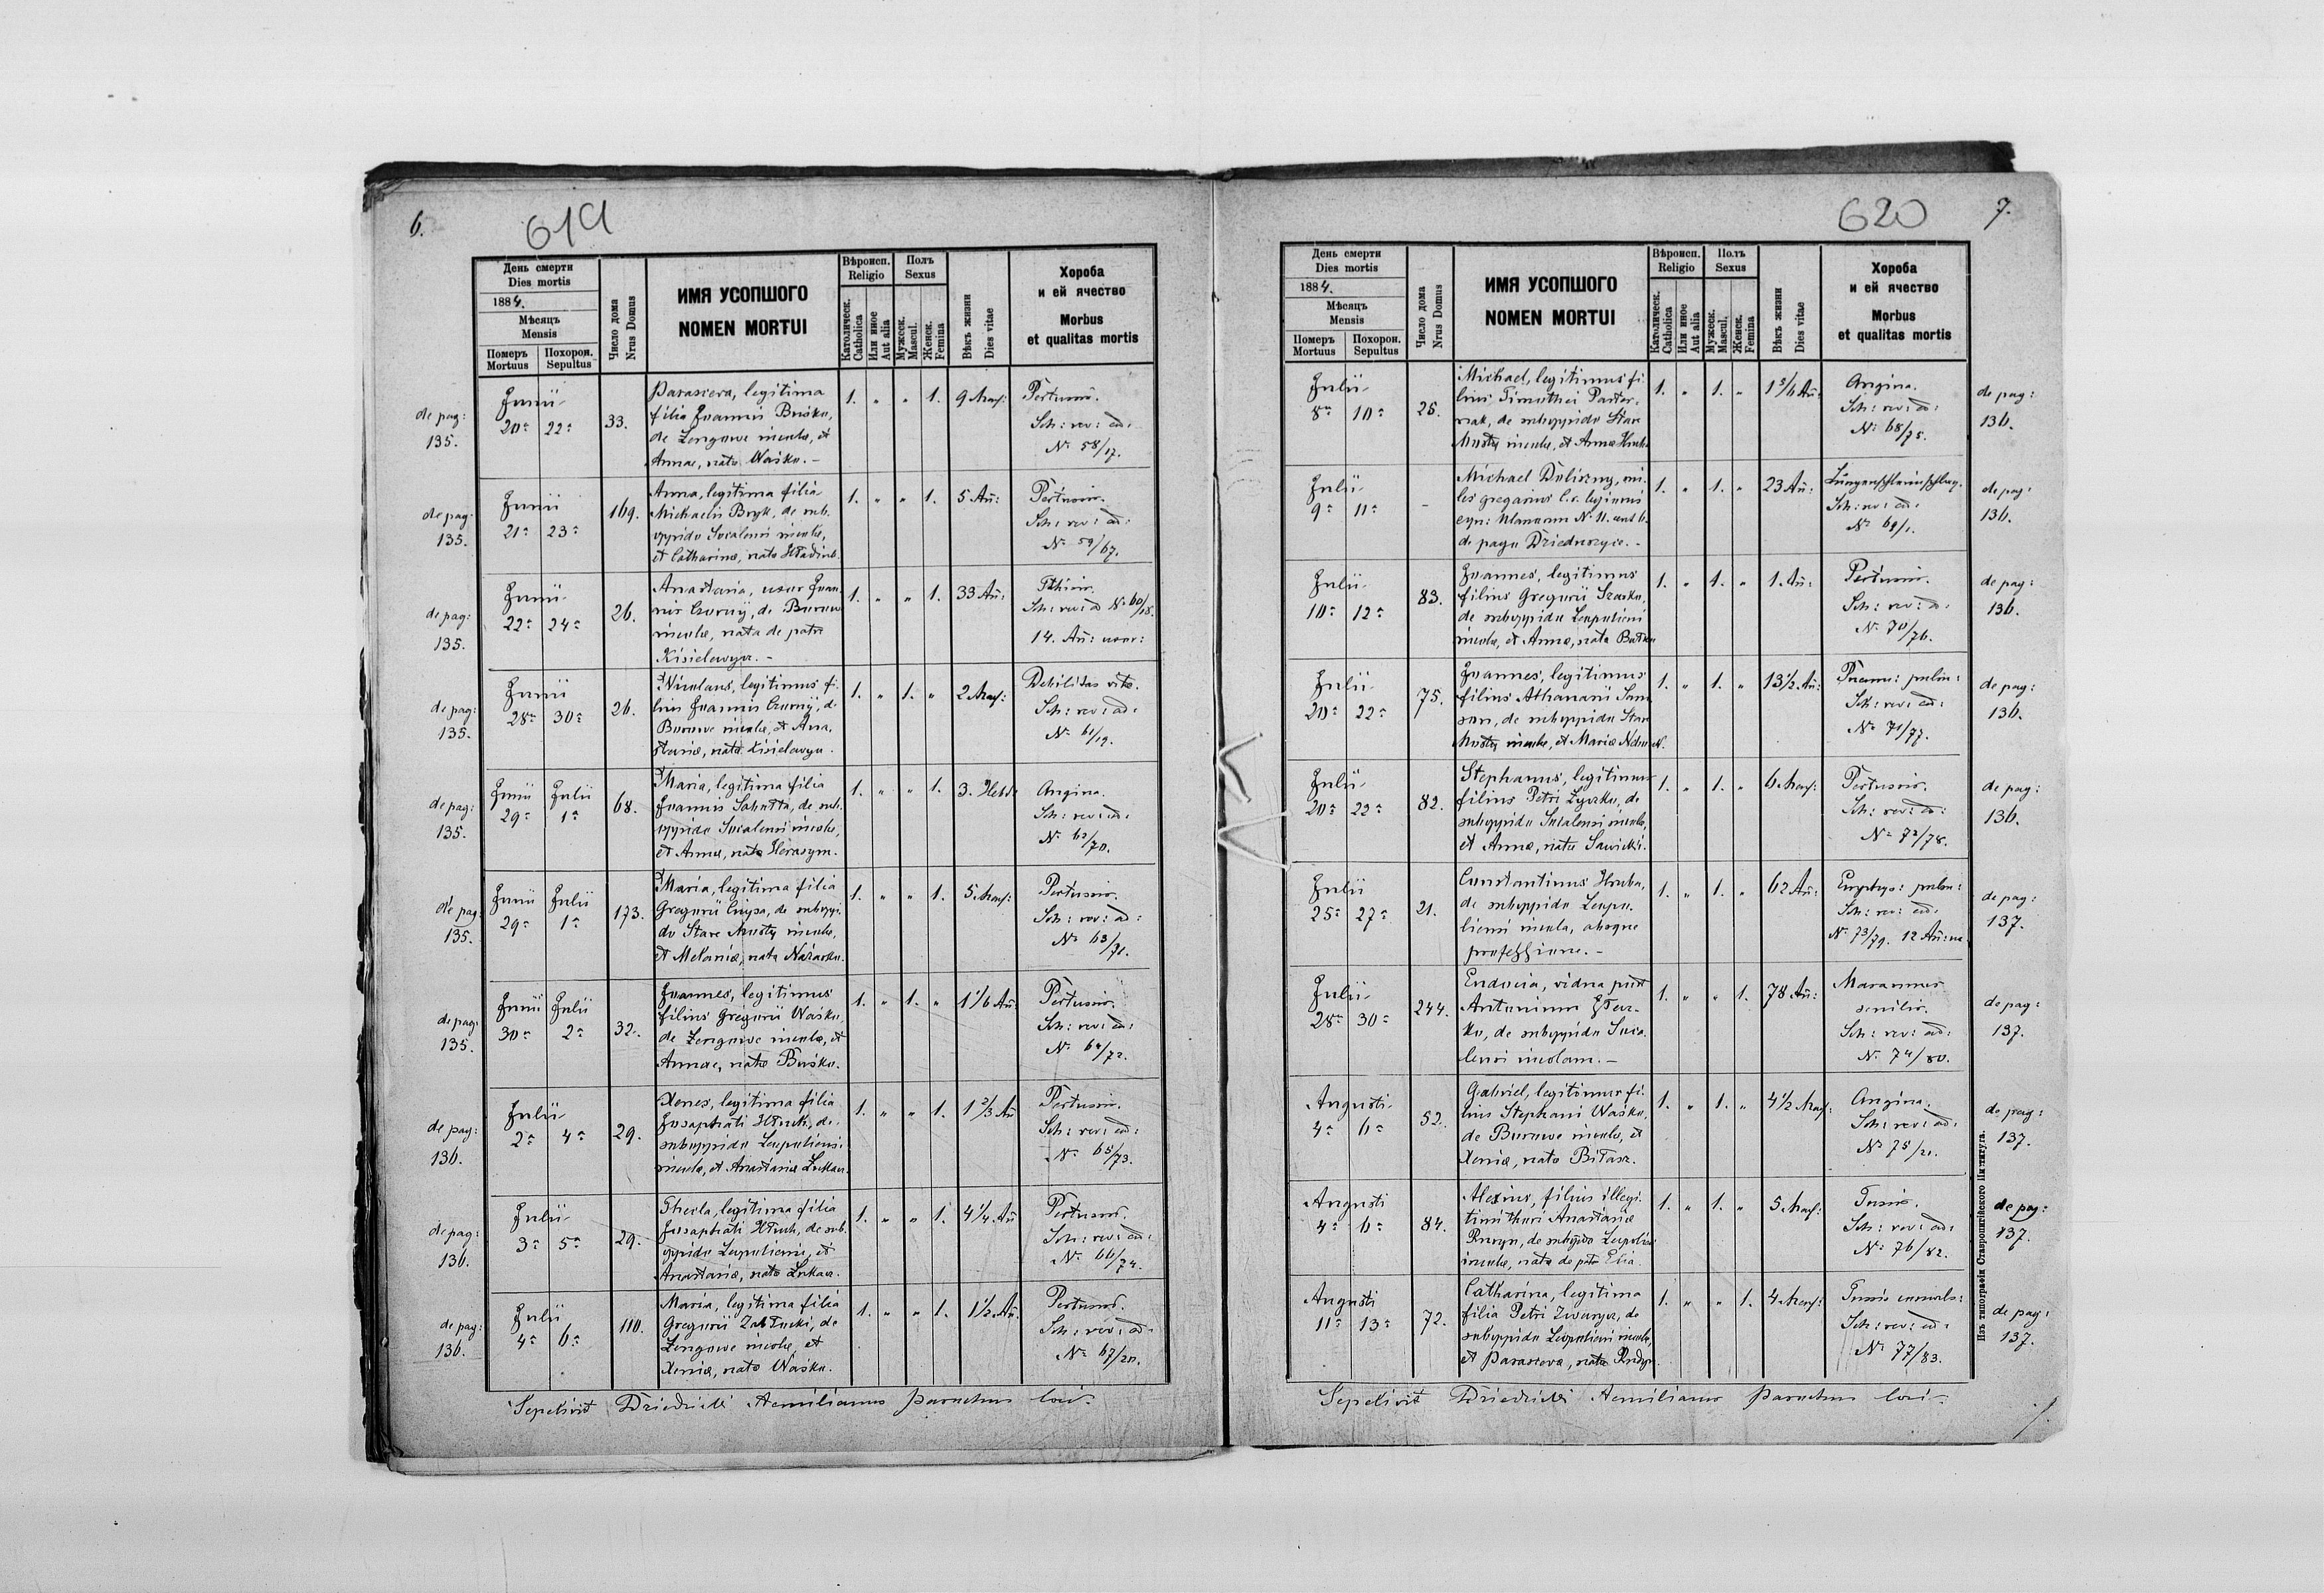 6.
619
День смерти
Dies mortis
1884.
Мѣсяцъ
Mensis
Померъ
Mortuus
Похорон.
Sepultus
Число дома
Nrus Domus
ИМЯ УСОПШОГО
NOMEN MORTUI
Вѣроисп.
Religio
Католическ.
Catholica
Или иное
Aut alia
Полъ
Sexus
Мужеск.
Mascul.
Женск.
Femina
Вѣкъ жизни
Dies vitae
Хороба
и ей ячество
Morbus
et qualitas mortis
de pag:
135.
Junii
20a 22a
33.
Parasceva, legitima
filia Joannis Buśko,
de Zengowe incolae, et
Annae, nata Waśko. –
1. „ „ 1.
9 Mens:
Pertussis.
Sch: rev: ad:
No 58/17.
de pag:
135.
Junii
21a 23a
169.
Anna, legitima filia
Michaelis Bryk, de sub-
oppido Socalensi incolae,
et Catharinae, nata
1. „ „ 1.
5 An̄:
Pertussis.
Sch: rev: ad:
No 59/67.
de pag:
135.
Junii
22a 24a
26.
Anastasia, uxor Joan-
nis Czornÿ, de Borowe
incolae, nata de patre
Kisielewycz. –
1. „ „ 1.
33 An̄:
Pthisis.
Sch: rev: ad No 60/18.
14. An̄: uxor:
de pag:
135.
Junii
28a 30a
26.
Nicolaus, legitimus fi-
lius Joannis Czornÿ, de
Borowe incolae, et Ana-
stasiae, nata Kisielewycz.
1. „ 1. „
2 Mens:
Debilitas vitae.
Sch: rev: ad:
No 61/19.
de pag:
135.
Junii Julii
29a 1a
68.
Maria, legitima filia
Joannis Sahatta, de sub-
oppido Socalensi incolae,
et Annae, nata Herasym.
1. „ „ 1.
3. Hebd:
Angina.
Sch: rev: ad:
No 62/70.
de pag:
135.
Junii Julii
29a 1a
173.
Maria, legitima filia
Gregorii de suboppi-
do Stare Misto incolae,
et Melaniae, nata Nazarko.
1. „ „ 1.
5. Mens:
Pertussis.
Sch: rev: ad:
No 63/71.
de pag:
135.
Junii Julii
30a 2a
32.
Joannes, legitimus
filius Gregorii Waśko,
de Zengowe incolae, et
Annae, nata Buśko.
1. „ 1. „
1 1/6 An̄:
Pertussis.
Sch: rev: ad:
No 64/72.
de pag:
136.
Julii
2a 4a
29.
Xenes, legitima filia
Josaphati Hłuch, de
suboppido Leopoliensi
incolae, et Anastasiae
1. „ „ 1.
1 2/3 An̄
Pertussis.
Sch: rev: ad:
No 65/73.
de pag:
136.
Julii
3a 5a
29.
Thecla, legitima filia
Josaphati Hłuch, de sub-
oppido Leopoliensi, et
Anastasiae, nata
1. „ „ 1.
4 1/4 An̄
Pertussis.
Sch: rev: ad:
No 66/74.
de pag:
136.
Julii
4a 6a
110.
Maria, legitima filia
Gregorii Zabłocki, de
Zengowe incolae, et
Xeniae, nata Waśko.
1. „ „ 1.
1 1/2 An̄.
Pertussis.
Sch: rev: ad:
No 67/20.
Sepelivit Dziedzicki Aemilianus parochus loci
620
7.
День смерти
Dies mortis
1884.
Мѣсяцъ
Mensis
Померъ
Mortuus
Похорон.
Sepultus
Число дома
Nrus Domus
ИМЯ УСОПШОГО
NOMEN MORTUI
Вѣроисп.
Religio
Католическ.
Catholica
Или иное
Aut alia
Полъ
Sexus
Мужеск.
Mascul.
Женск.
Femina
Вѣкъ жизни
Dies vitae
Хороба
и ей ячество
Morbus
et qualitas mortis
Julii
8a 10a
25.
Michael, legitimus fi-
lius Timothei Paster-
nak, de suboppido Stare
Misto incolae, et Annae Hruba
1. „ 1. „
1 5/6 An̄:
Angina.
Sch: rev: ad:
No 68/75.
de pag:
136.
Julii
9a 11a
–
Michael mi-
les gregarius c.r. legionis
eqn: Ulanorum No 11.
de pago Dzieduszyce. –
1. „ 1. „
23 An̄:
Sch: rev: ad:
No 69/1.
de pag:
136.
Julii
10a 12a
83.
Joannes, legitimus
filius Gregorii
de suboppido Leopoliensi
incolae, et Annae, nata
1. „ 1. „
1. An̄:
Pertussis.
Sch: rev: ad:
No 70/76.
de pag:
136.
Julii
20a 22a
75.
Joannes, legitimus
filius Athanasii Sam-
son, de suboppido Stare
Misto incolae, et Mariae
1. „ 1. „
13 1/2 An̄:
Pneumo: pulm:
Sch: rev: ad:
No 71/77.
de pag:
136.
Julii
20a 22a
82.
Stephanus, legitimus
filius Petri Zyvko, de
suboppido Socalensi incolae,
et Annae, nata Sawicki.
1. „ 1. „
6 Mens:
Pertussis.
Sch: rev: ad:
No 72/78.
de pag:
136.
Julii
25a 27a
21.
Constantinus Hruba,
de suboppido Leopo-
liensi incola, absque
professione. –
1. „ 1. „
62 An̄:
Emphys: pulm:
Sch: rev: ad:
No 73/79. 12 An̄:
de pag:
137.
Julii
28a 30a
244.
Eudocia, vidua post
Antonium
ko, de suboppido Soca-
lensi incolam. –
1. „ „ 1.
78 An̄:
Marasmus
senilis.
Sch: rev: ad:
No 74/80.
de pag:
137.
Augusti
4a 6a
52.
Gabriel, legitimus fi-
lius Stephani Waśko,
de Borowe incolae, et
Xeniae, nata Biłasz.
1. „ 1. „
4 1/2 Mens:
Angina.
Sch: rev: ad:
No 75/21.
de pag:
137.
Augusti
4a 6a
84.
Alexius, filius illegi-
timi thori Anastasiae
de suboppido Leopoliensi
incolae, nata de patre Elia.
1. „ 1. „
5 Mens:
Tussis.
Sch: rev: ad:
No 76/82.
de pag:
137.
Augusti
11a 13a
72.
Catharina, legitima
filia Petri Zwarycz, de
suboppido Leopoliensi incolae,
et Parascevae, nata
1. „ „ 1.
4 Mens:
Tussis convuls:
Sch: rev: ad:
No 77/83.
de pag:
137.
Изъ типографіи Ставропигійского Института.
Sepelivit Dziedzicki Aemilianus parochus loci